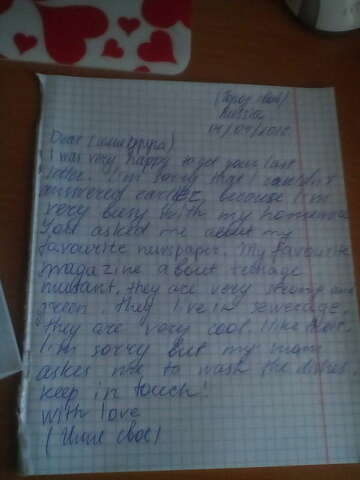 (Город свой)
Russia
14/04/20
Dear (имя друга)
I was very happy to get your last
letter. I'm sorry that I couldn't
answered earlier because I'm
very busy with my homework
You asked me about my
favourite newspaper. My favourite
magazine about teenage
mutant. they are very strong and
green. they live in sewerage.
they are very cool. I like them.
I'm sorry but my mom
askes me to wash the dishes.
keep in touch!
with love
(Имя своё)